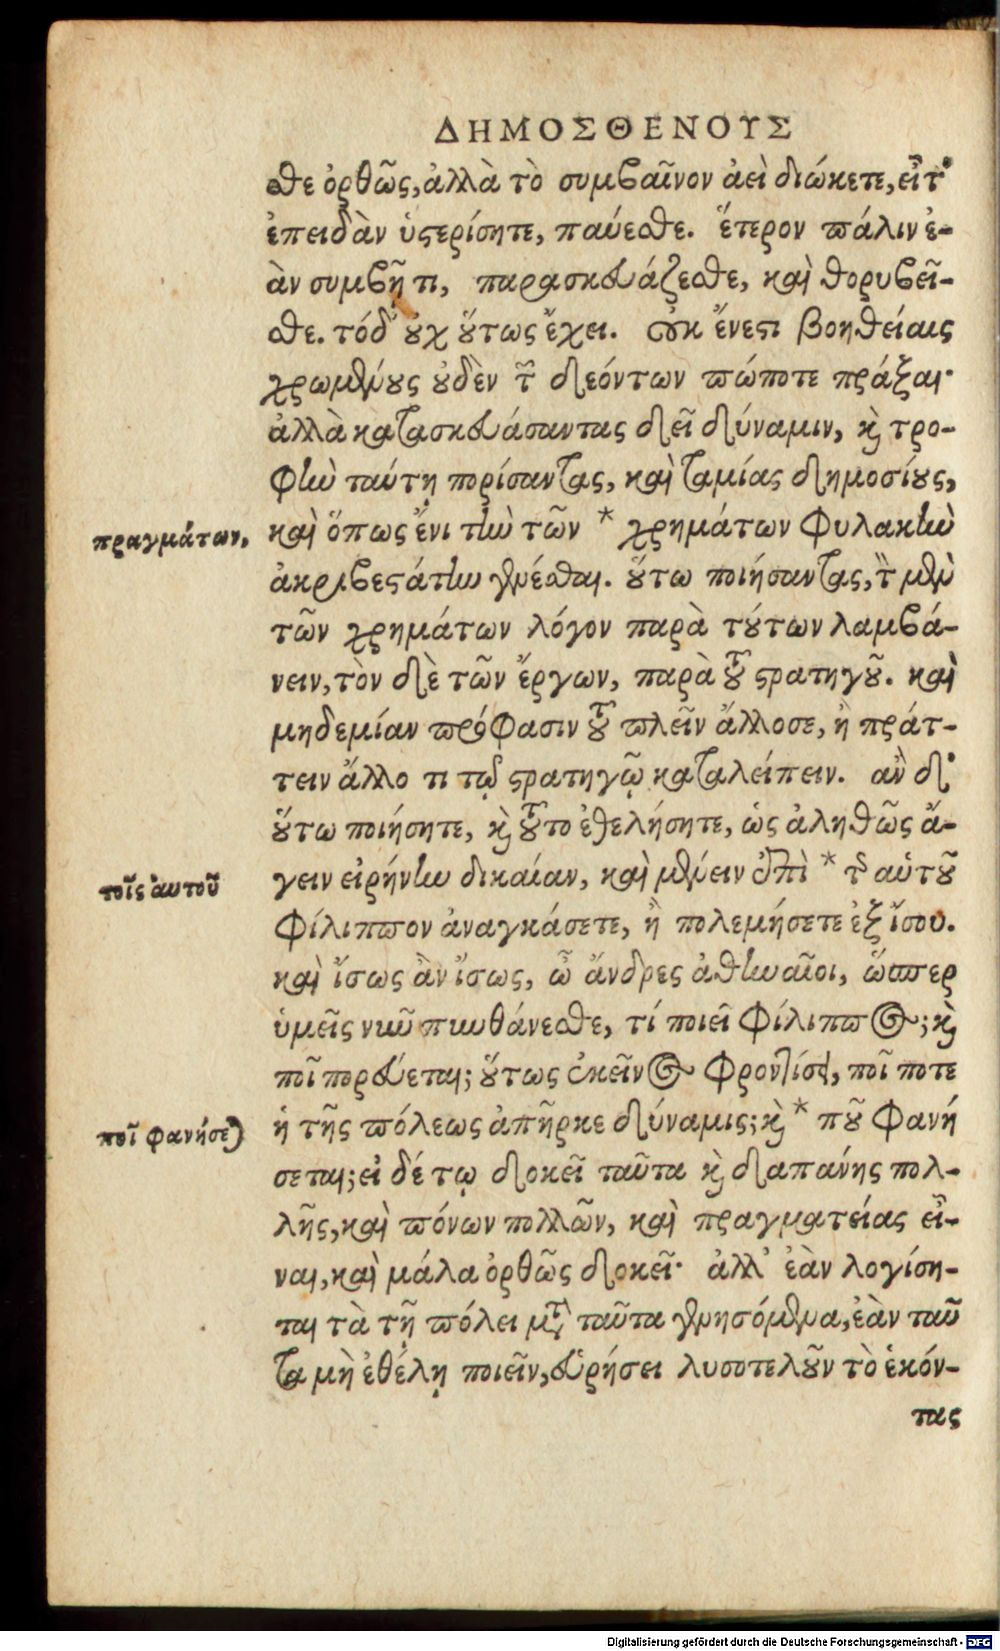 ΔΗΜΟΣΘΕΝΟΥΣ
σθε ὀρθῶς, ἀλλὰ τὸ συμβαῖνον ἀεὶ διώκετε, εἶτ'
ἐπειδὰν ὑστερίσητε, παύεσθε. ἕτερον πάλιν ἐ-
ὰν συμβῇ τι, παρασκευάζεσθε, καὶ θορυβεῖ-
σθε. τόδ' οὐχ οὕτως ἔχει. οὐκ ἔνεστι βοηθείαις
χρωμένους οὐδὲν τῶν δεόντων πώποτε πράξαι·
ἀλλὰ κατασκευάσαντας δεῖ δύναμιν, καὶ τρο-
φὴν ταύτῃ πορίσαντας, καὶ ταμίας δημοσίους,
πραγμάτων,
καὶ ὅπως ἔνι τὴν τῶν * χρημάτων φυλακὴν
ἀκριβεστάτην γενέσθαι. οὕτω ποιήσαντας, τὸν μὲν
τῶν χρημάτων λόγον παρὰ τούτων λαμβά-
νειν, τὸν δὲ τῶν ἔργων, παρὰ τοῦ στρατηγοῦ. καὶ
μηδεμίαν πρόφασιν τοῦ πλεῖν ἄλλοσε, ἢ πράτ-
τειν ἄλλο τι τῷ στρατηγῷ καταλείπειν. ἂν δ'
οὕτω ποιήσητε, καὶ τοῦτο ἐθελήσητε, ὡς ἀληθῶς ἄ-
τοῖς αὑτοῦ
γειν εἰρήνην δικαίαν, καὶ μένειν ἐπὶ * τῆς αὑτοῦ
Φίλιππον ἀναγκάσετε, ἢ πολεμήσετε ἐξ ἴσου.
καὶ ἴσως ἂν ἴσως, ὦ ἄνδρες ἀθηναῖοι, ὥσπερ
ὑμεῖς νῦν πυνθάνεσθε, τί ποιεῖ Φίλιππος; καὶ
ποῖ πορεύεται; οὕτως ἐκεῖνος φροντίσαι, ποῖ ποτε
ποῖ φανήσεται
ἡ τῆς πόλεως ἀπῆρκε δύναμις; καὶ * ποῦ φανή
σεται; εἰ δέ τῳ δοκεῖ ταῦτα καὶ δαπάνης πολ-
λῆς, καὶ πόνων πολλῶν, καὶ πραγματείας εἶ-
ναι, καὶ μάλα ὀρθῶς δοκεῖ· ἀλλ' ἐὰν λογίση-
ται τὰ τῇ πόλει μετὰ ταῦτα γενησόμενα, ἐὰν ταῦ
τα μὴ ἐθέλῃ ποιεῖν, εὑρήσει λυσοτελοῦν τὸ ἑκόν-
τας
Digitalisierung gefördert durch die Deutsche Forschungsgemeinschaft - DFG